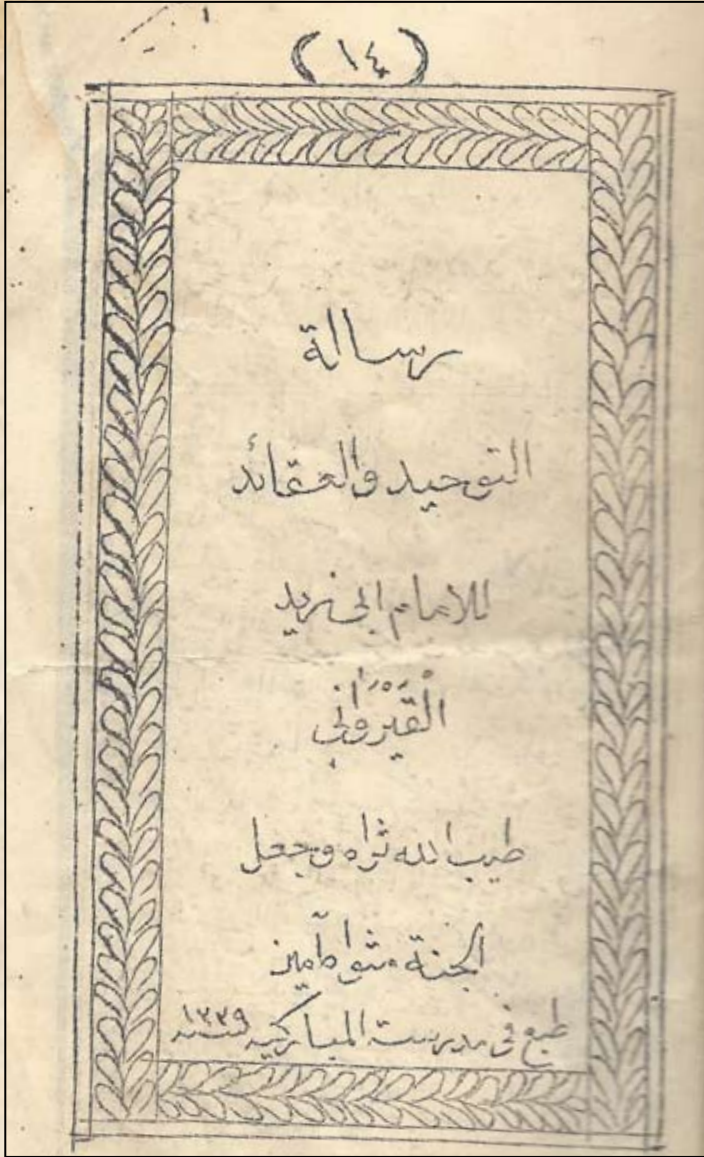 (١٤)
رسالة
التوحيد والعقائد
للامام ابى زيد
الْقَيْرَوَانِي
طيب الله ثراه وجعل
الجنة مثواه آمين
طبع فى مدرسة المباركيه سنه ١٣٣٩